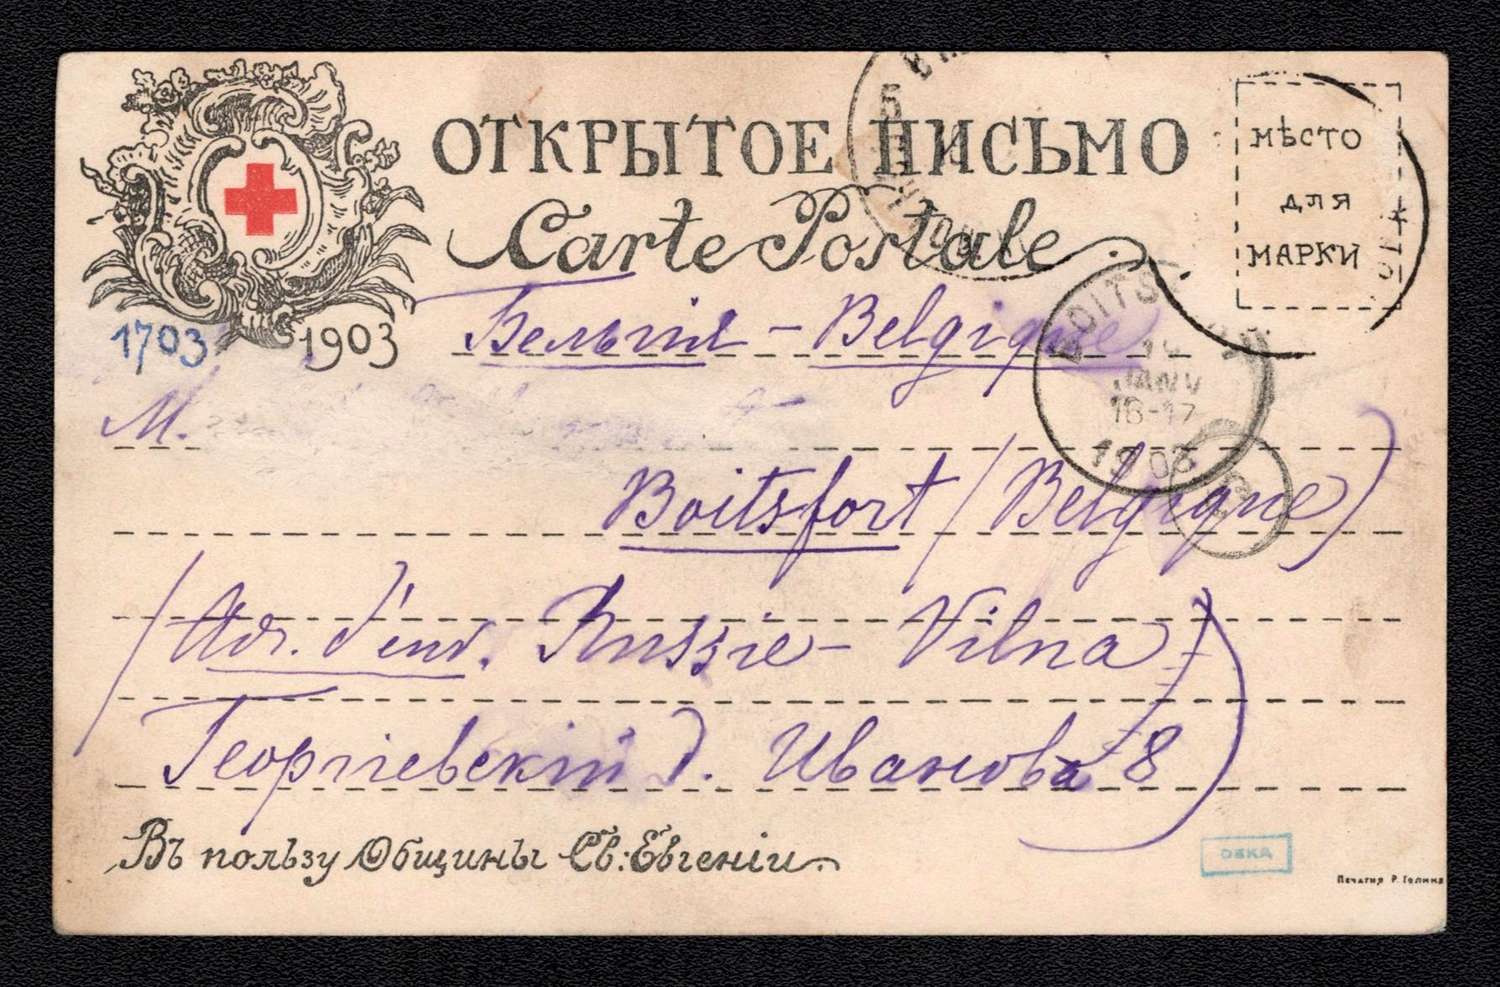 ОТКРЫТОЕ ПИСЬМО
Carte Postale
МѢСТО
ДЛЯ
МАРКИ
1703 1903
Бельгія - Belgique
BOITS
14
JANV
16-17
1903
М.
Boitsfort (Belgique)
(Adr. d'env. Russie - Vilna
Георгіевскій д. Иванова 8)
Въ пользу Общины Св: Евгеніи
Печатня Р. Голике